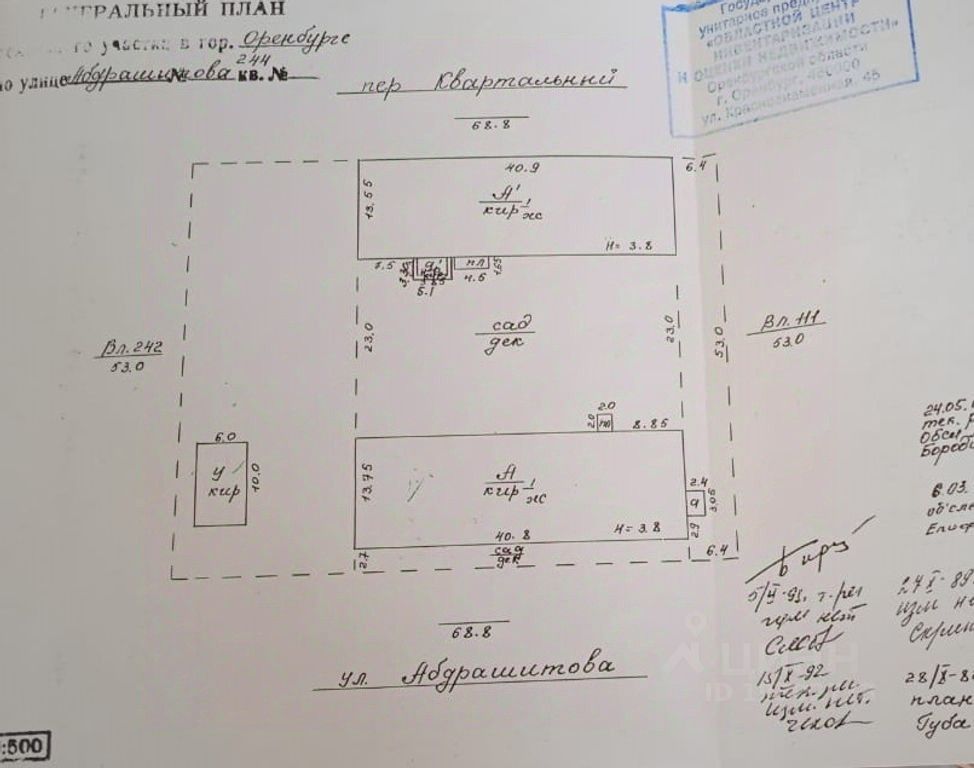 ГЕНЕРАЛЬНЫЙ ПЛАН
участка в гор. Оренбурге
по улице Абдрашитова № 244 кв. №
Государ
унитарное пред
«ОБЛАСТНОЙ ЦЕНТР
ИНВЕНТАРИЗАЦИИ
И ОЦЕНКИ НЕДВИЖИМОСТИ»
Оренбургской области
г. Оренбург, 460000
ул. Краснознаменная, 45
пер Квартальный
68.8
40.9
6.4
13.55
А'
кир 1 жс
Н= 3.8
7.5
5.1
нл
4.5
1.55
23,0
сад
дек
23.0
53.0
Вл. 242
53.0
Вл. 111
53.0
2.0
2.0
8.85
6.0
У
кир
10.0
13.75
А
кир 1 жс
Н= 3.8
2.4
а
3.05
2.9
40.8
сад
дек
2.7
6.4
68.8
ул. Абдрашитова
24.05.
тек.
Обсл
6.03.
обсле
5/II-93, т. рег
изм нет
15/X-92
тек. ри.
Изм. нет.
27/X-89
изм не
28/X-8
план
Губа
ЦИАН
ID 1
:500